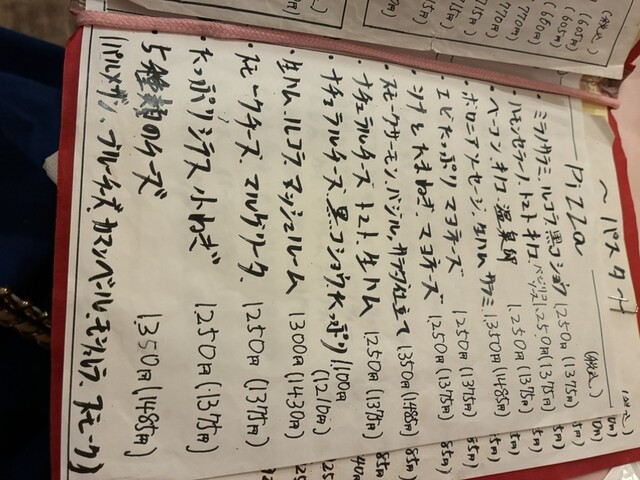 〜パスタ
Pizza
(税込)
・ミラノサラミ、ルコラ、黒コショウ 1250円(1375円)
・ハモンセラーノ、トマト、キノコ、バジルソース 1250円(1375円)
・ベーコン、キノコ、温泉卵 1250円(1375円)
・ボロニアソーセージ、生ハム、サラミ 1350円(1485円)
・エビたっぷりマヨチーズ 1250円(1375円)
・シナと玉ねぎ、マヨチーズ 1250円(1375円)
・スモークサーモン、バジル、サラダ仕立て 1350円(1485円)
・ナチュラルチーズ、トマト、生ハム 1250円(1375円)
・ナチュラルチーズ、黒コショウたっぷり 1100円(1210円)
・生ハム、ルコラ、マッシュルーム 1300円(1430円)
・スモークチーズ、マルゲリータ 1250円(1375円)
・たっぷりシラス、小ねぎ 1250円(1375円)
・5種類のチーズ 1350円(1485円)
(パルメザン、ブルーチーズ、カマンベール、モッツァレラ、スモーク)